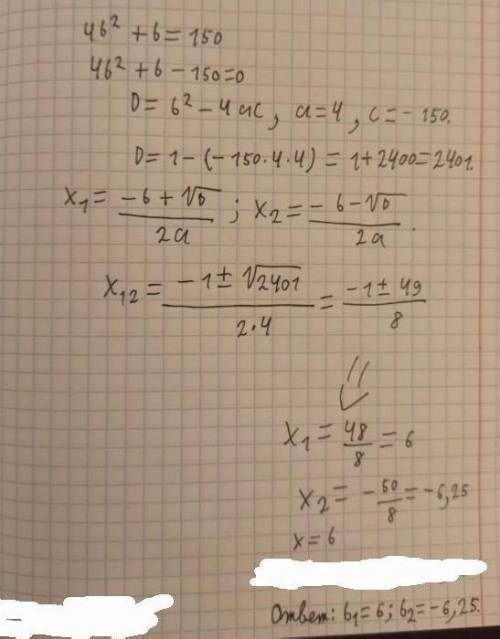 4b² + b = 150
4b² + b - 150 = 0
D = b² - 4ac, a = 4, c = -150.
D = 1 - (-150·4·4) = 1 + 2400 = 2401.
x₁ = (-b + √D)/2a ; x₂ = (-b - √D)/2a.
x₁₂ = (-1 ± √2401)/(2·4) = (-1 ± 49)/8
x₁ = 48/8 = 6
x₂ = -50/8 = -6,25
x = 6
Ответ: b₁ = 6; b₂ = -6,25.